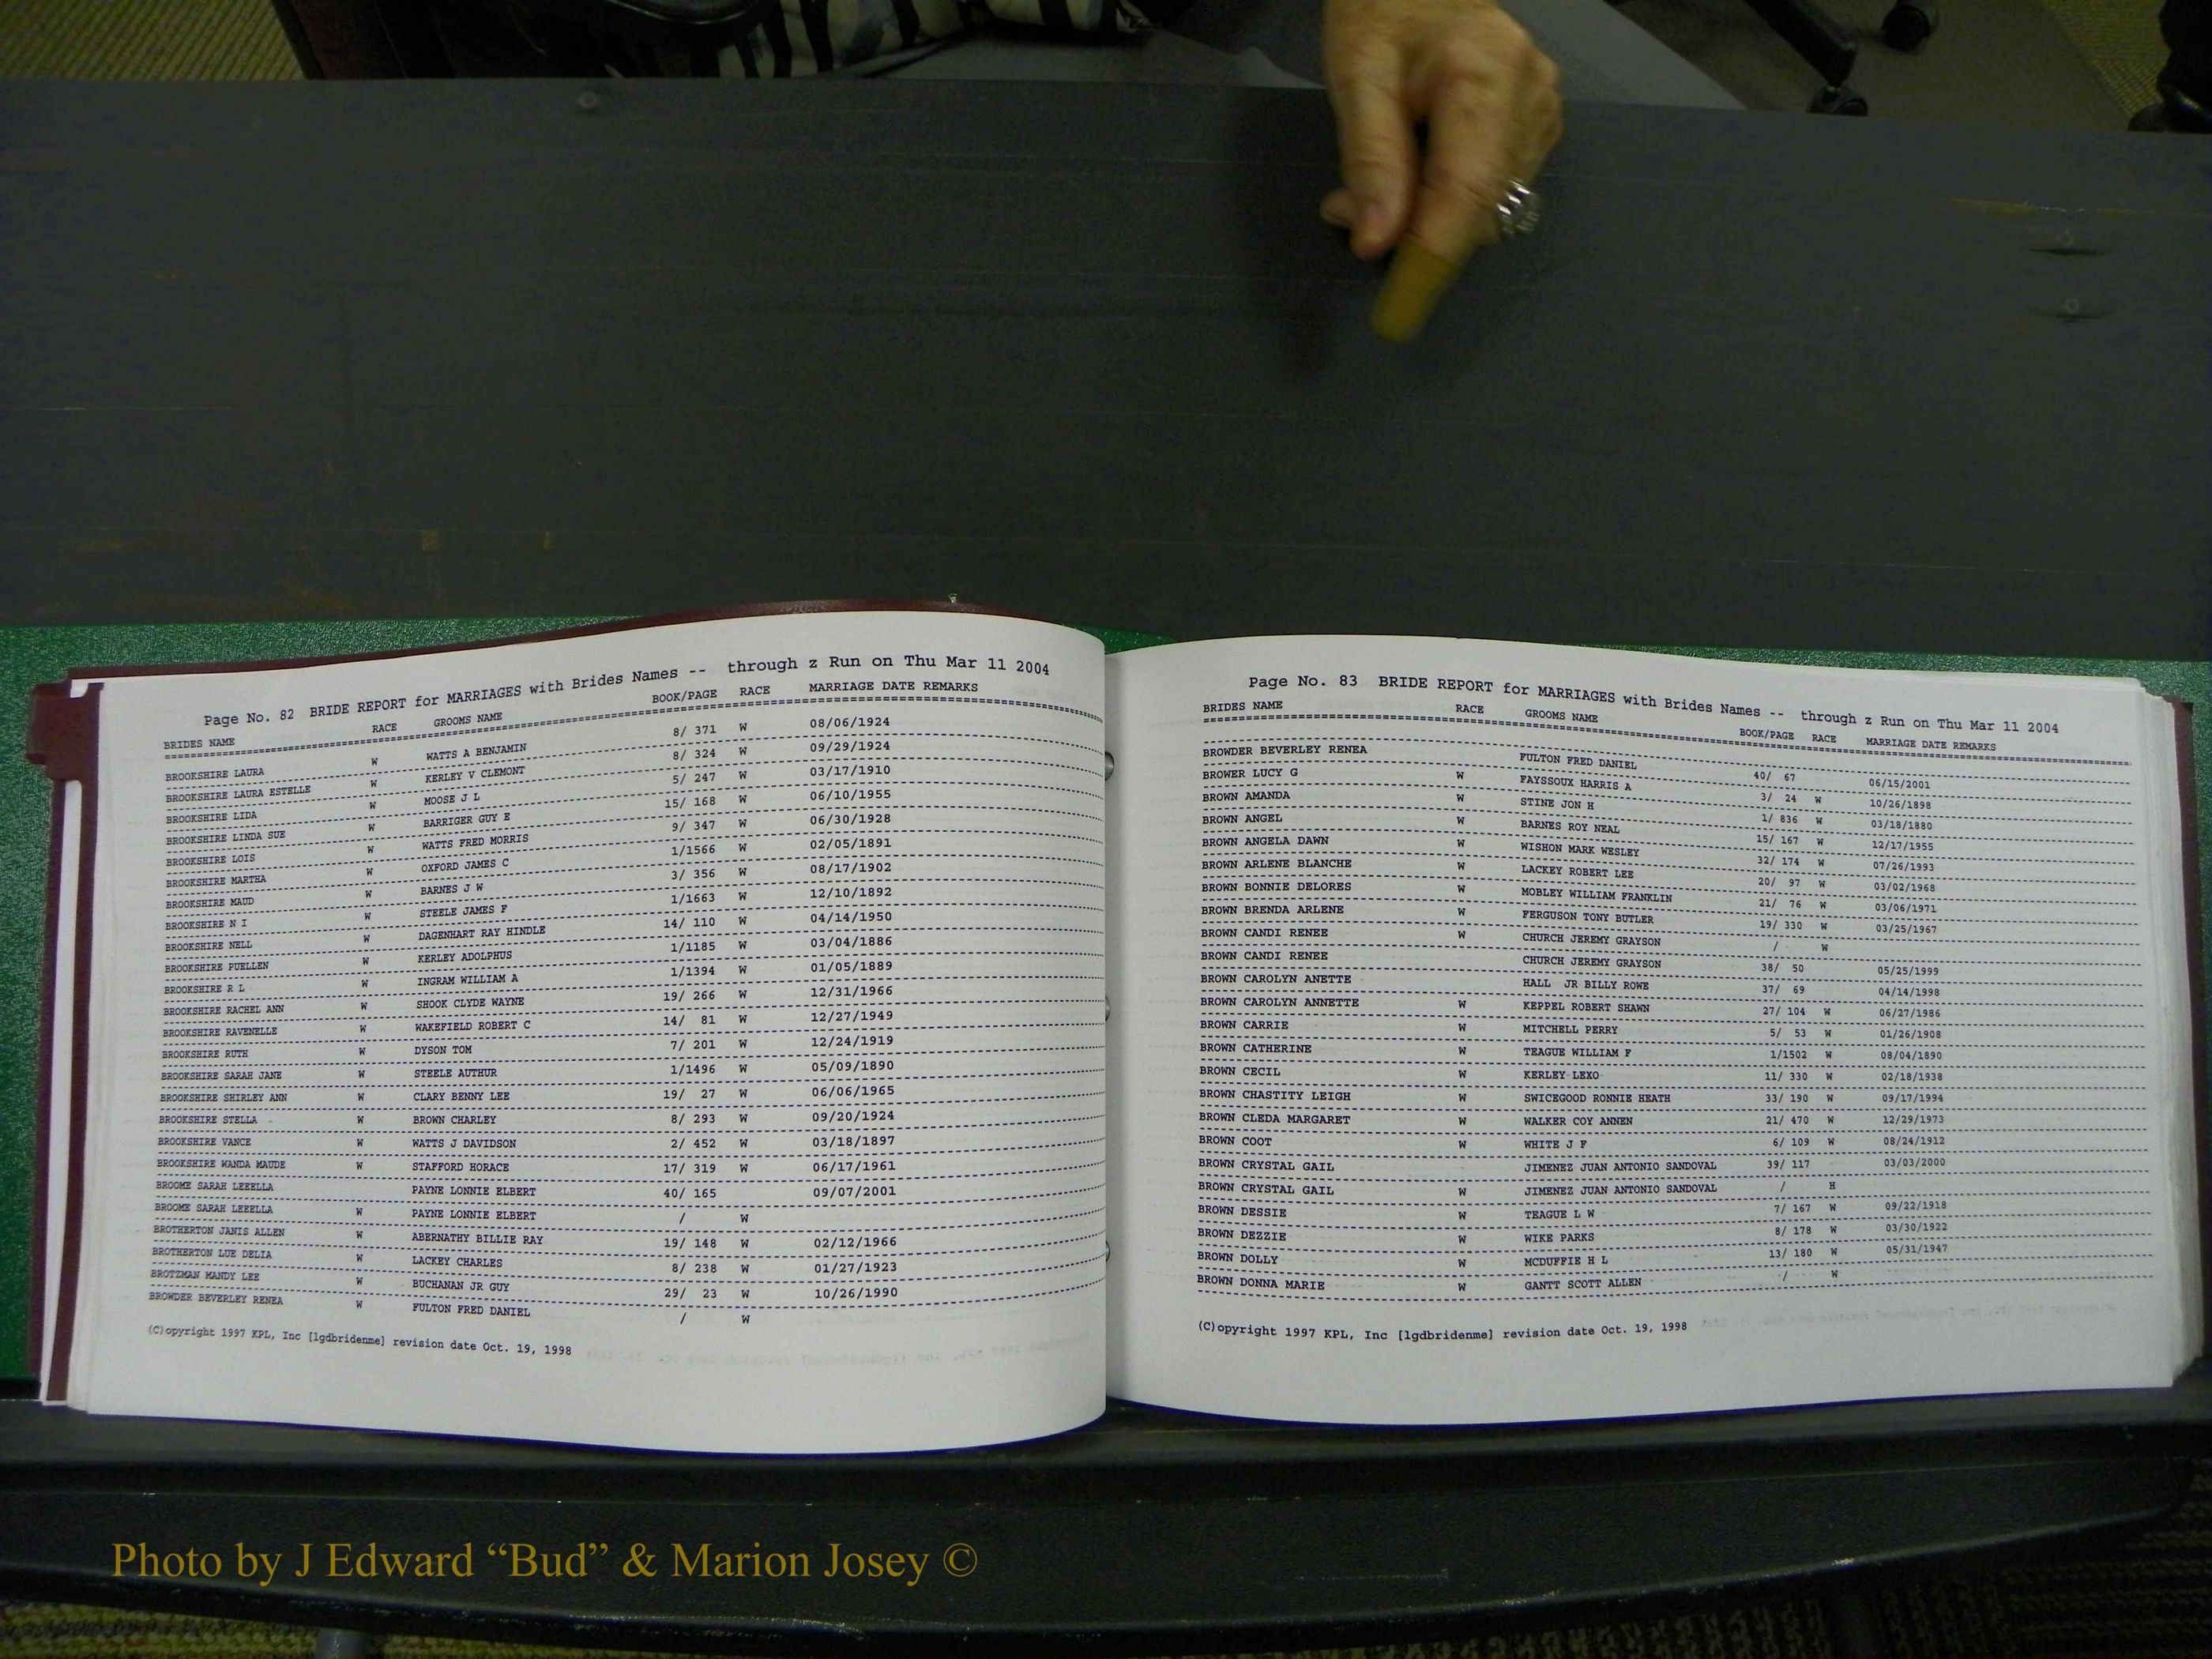 Page No. 82 BRIDE REPORT for MARRIAGES with Brides Names -- through z Run on Thu Mar 11 2004
BRIDES NAME RACE GROOMS NAME BOOK/PAGE RACE MARRIAGE DATE REMARKS
BROOKSHIRE LAURA W WATTS A BENJAMIN 8/ 371 W 08/06/1924
BROOKSHIRE LAURA ESTELLE W KERLEY V CLEMONT 8/ 324 W 09/29/1924
BROOKSHIRE LIDA W MOOSE J L 5/ 247 W 03/17/1910
BROOKSHIRE LINDA SUE W BARRIGER GUY E 15/ 168 W 06/10/1955
BROOKSHIRE LOIS W WATTS FRED MORRIS 9/ 347 W 06/30/1928
BROOKSHIRE MARTHA W OXFORD JAMES C 1/1566 W 02/05/1891
BROOKSHIRE MAUD W BARNES J W 3/ 356 W 08/17/1902
BROOKSHIRE N I W STEELE JAMES F 1/1663 W 12/10/1892
BROOKSHIRE NELL W DAGENHART RAY HINDLE 14/ 110 W 04/14/1950
BROOKSHIRE PUELLEN W KERLEY ADOLPHUS 1/1185 W 03/04/1886
BROOKSHIRE R L W INGRAM WILLIAM A 1/1394 W 01/05/1889
BROOKSHIRE RACHEL ANN W SHOOK CLYDE WAYNE 19/ 266 W 12/31/1966
BROOKSHIRE RAVENELLE W WAKEFIELD ROBERT C 14/ 81 W 12/27/1949
BROOKSHIRE RUTH W DYSON TOM 7/ 201 W 12/24/1919
BROOKSHIRE SARAH JANE W STEELE AUTHUR 1/1496 W 05/09/1890
BROOKSHIRE SHIRLEY ANN W CLARY BENNY LEE 19/ 27 W 06/06/1965
BROOKSHIRE STELLA W BROWN CHARLEY 8/ 293 W 09/20/1924
BROOKSHIRE VANCE W WATTS J DAVIDSON 2/ 452 W 03/18/1897
BROOKSHIRE WANDA MAUDE W STAFFORD HORACE 17/ 319 W 06/17/1961
BROOME SARAH LEEELLA PAYNE LONNIE ELBERT 40/ 165 09/07/2001
BROOME SARAH LEEELLA W PAYNE LONNIE ELBERT / W
BROTHERTON JANIS ALLEN W ABERNATHY BILLIE RAY 19/ 148 W 02/12/1966
BROTHERTON LUE DELIA W LACKEY CHARLES 8/ 238 W 01/27/1923
BROTZMAN MANDY LEE W BUCHANAN JR GUY 29/ 23 W 10/26/1990
BROWDER BEVERLEY RENEA W FULTON FRED DANIEL / W
(C)opyright 1997 KPL, Inc [lgdbridenme] revision date Oct. 19, 1998
Page No. 83 BRIDE REPORT for MARRIAGES with Brides Names -- through z Run on Thu Mar 11 2004
BRIDES NAME RACE GROOMS NAME BOOK/PAGE RACE MARRIAGE DATE REMARKS
BROWDER BEVERLEY RENEA FULTON FRED DANIEL 40/ 67 06/15/2001
BROWER LUCY G W FAYSSOUX HARRIS A 3/ 24 W 10/26/1898
BROWN AMANDA W STINE JON H 1/ 836 W 03/18/1880
BROWN ANGEL W BARNES ROY NEAL 15/ 167 W 12/17/1955
BROWN ANGELA DAWN W WISHON MARK WESLEY 32/ 174 W 07/26/1993
BROWN ARLENE BLANCHE W LACKEY ROBERT LEE 20/ 97 W 03/02/1968
BROWN BONNIE DELORES W MOBLEY WILLIAM FRANKLIN 21/ 76 W 03/06/1971
BROWN BRENDA ARLENE W FERGUSON TONY BUTLER 19/ 330 W 03/25/1967
BROWN CANDI RENEE W CHURCH JEREMY GRAYSON / W
BROWN CANDI RENEE CHURCH JEREMY GRAYSON 38/ 50 05/25/1999
BROWN CAROLYN ANETTE HALL JR BILLY ROWE 37/ 69 04/14/1998
BROWN CAROLYN ANNETTE W KEPPEL ROBERT SHAWN 27/ 104 W 06/27/1986
BROWN CARRIE W MITCHELL PERRY 5/ 53 W 01/26/1908
BROWN CATHERINE W TEAGUE WILLIAM F 1/1502 W 08/04/1890
BROWN CECIL W KERLEY LEXO 11/ 330 W 02/18/1938
BROWN CHASTITY LEIGH W SWICEGOOD RONNIE HEATH 33/ 190 W 09/17/1994
BROWN CLEDA MARGARET W WALKER COY ANNEN 21/ 470 W 12/29/1973
BROWN COOT W WHITE J F 6/ 109 W 08/24/1912
BROWN CRYSTAL GAIL JIMENEZ JUAN ANTONIO SANDOVAL 39/ 117 03/03/2000
BROWN CRYSTAL GAIL W JIMENEZ JUAN ANTONIO SANDOVAL / H
BROWN DESSIE W TEAGUE L W 7/ 167 W 09/22/1918
BROWN DEZZIE W WIKE PARKS 8/ 178 W 03/30/1922
BROWN DOLLY W MCDUFFIE H L 13/ 180 W 05/31/1947
BROWN DONNA MARIE W GANTT SCOTT ALLEN / W
(C)opyright 1997 KPL, Inc [lgdbridenme] revision date Oct. 19, 1998
Photo by J Edward “Bud” & Marion Josey ©